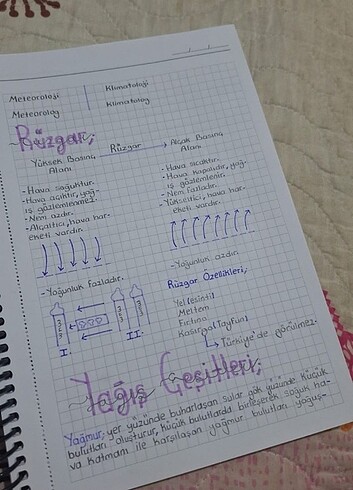 Meteoroloji
Klimatoloji
Meteorolog
Klimatolog
Rüzgar;
Yüksek Basınç
Alanı
Rüzgar
Alçak Basınç
Alanı
- Hava soğuktur.
- Hava açıktır, yağ-
ış gözlemlenmez.
- Nem azdır.
- Alçaltıcı, hava har-
eketi vardır.
- Hava sıcaktır.
- Hava kapalıdır, yağ-
ış gözlemlenir.
- Nem fazladır.
- Yükseltici, hava har-
eketi vardır.
- Yoğunluk fazladır.
- Yoğunluk azdır.
I.
II.
Rüzgar Özellikleri;
Yel (esinti)
Meltem
Fırtına
Kasırga (Tayfun)
Türkiye'de görülmez.
Yağış Çeşitleri;
Yağmur; yer yüzünde buharlaşan sular gök yüzünde küçük
bulutları oluşturur, küçük bulutlarda birleşerek soğuk ha-
va katmanı ile karşılaşan yağmur bulutları yoğuş-